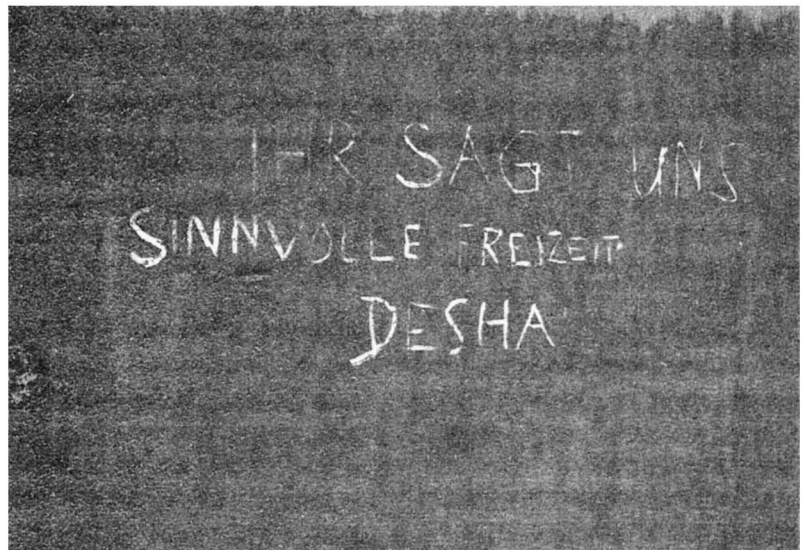 IHR SAGT UNS
SINNVOLLE FREIZEIT
DESHA